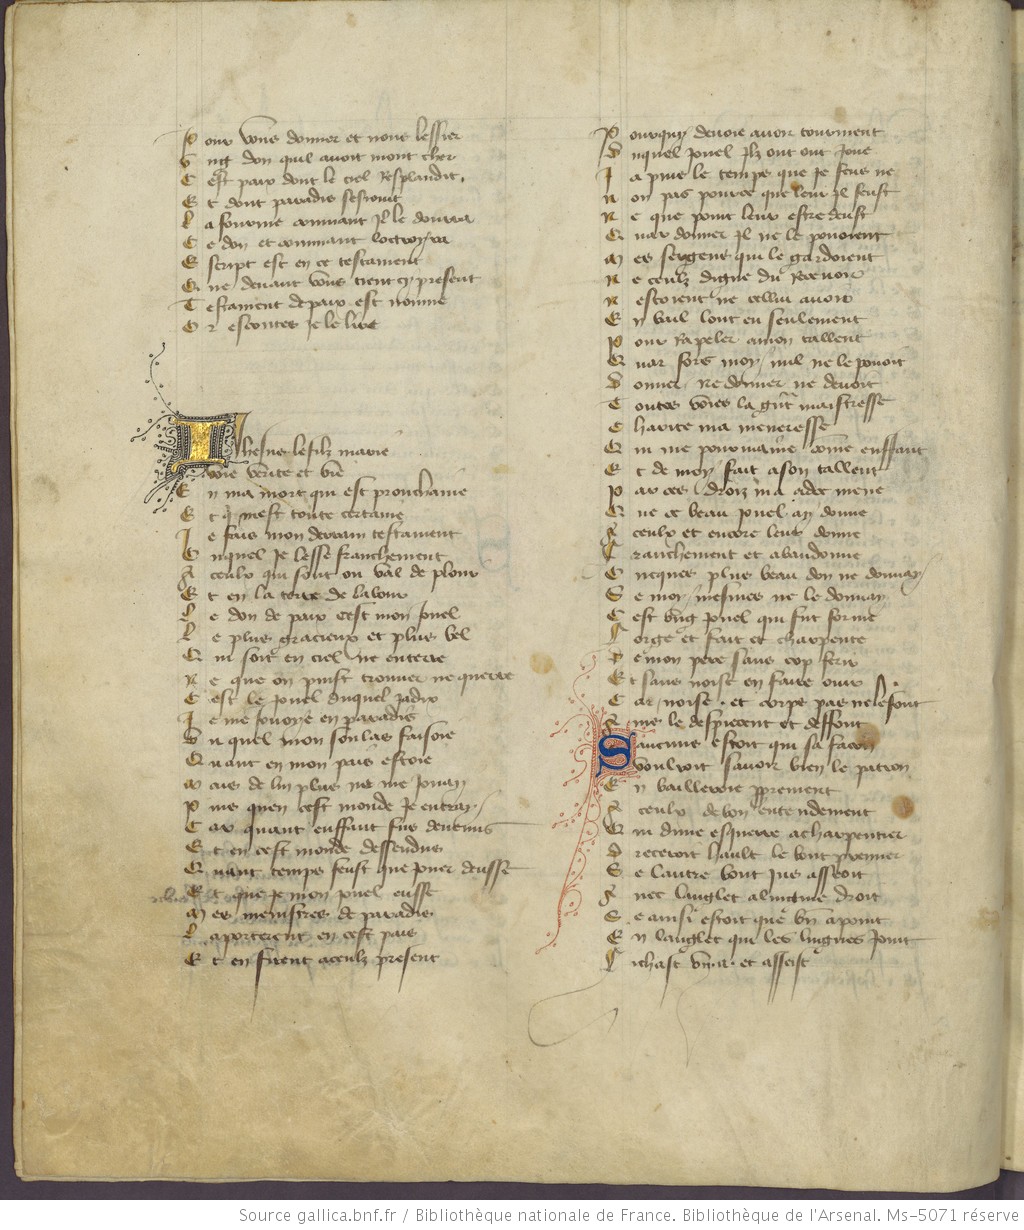 Pour vous donner et vous lessier
Ung don quil avoit mont cher
Cest paix dont le ciel resplandit
Et dont paradis sesiouit
La fourme commant il le donrra
Ce don et commant loctroyra
Escript est en ce testament
Que devant vous tient cy present
Testament de paix est nomme
Or escoutes je le lire
Ihesus le filz marie
voie verite et vie
En ma mort qui est prouchaine
Et qi mest toute certaine
Je fais mon derrain testament
Ouquel je lesse franchement
A ceulx qui sont ou val de plour
Et en la terre de labour
Le don de paix cest mon jouel
Le plus gracieux et plus bel
Qui soit en ciel ne en terre
Ne que on puist trouver ne querre
Cest le jouel duquel jadix
Je me jouoye en paradis
Du quel mon soulas faisoie
Quant en mon pais estoie
Mais de lui plus ne me jouay
Puis quen cest monde je entray
Car quant enffant fus devenus
Et en cest monde dessendus
Quant temps feust que jouer deusse
Et que je mon jouel eusse
Mes menistres de paradis
Laporterent en cest pais
Et en firent a ceulz present
Pourquoy devoie avoir tourment
Duquel jouel ilz ont ont joue
Ja puis le temps que je feus ne
Non pas pource que leur il feust
Ne que point leur estre deust
Quar donner il ne le povoient
Mes sergens qui le gardoient
Ne ceulz digne du recevoir
Nestoient ne cellui avoir
En bail lont eu seulement
Pour rapeler a mon tallent
Quar fors moy nul ne le povoit
Donner ne donner ne devoit
Toutes voies la gnt maistresse
Charite ma meneresse
Qui me pourmaine come enffant
Et de moy fait a son tallent
Par ces droiz ma adec mene
Que ce beau jouel ay donne
A ceulx et encore leur donne
Franchement et abandonne
Oncques plus beau don ne donnay
Se moy mesmes ne le donnay
Cest ung jouel qui fut forme
Forge et fait et charpente
De mon pere sans cop ferir
Et sans noise en faire ouir
Car noise et corps pas ne le font
Ains le despiecent et deffont
Saucuns estoit qui sa facon
Voulroit savoir bien le patron
En bailleroie pprement
A ceulx de bon entendement
Qui dune esquerre a charpentier
Dreceroit hault le bout premier
Se lautre bout jus asseoit
Avec langlet a lingne droit
Se ainsi estoit que bn a point
En langlet qui les lingnes joint
Fichast vn .a. et asseist